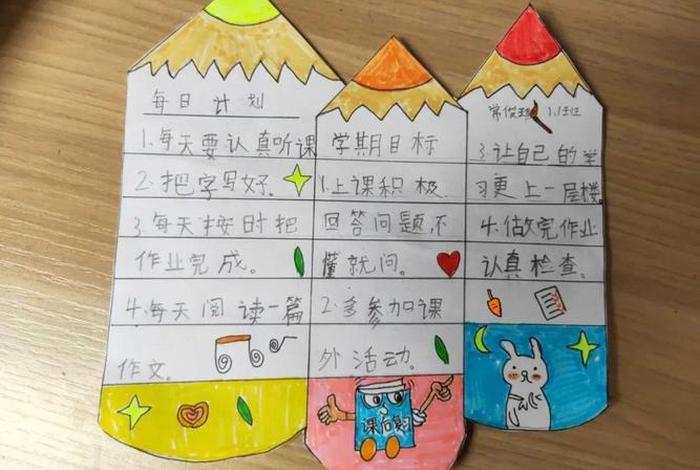 每日计划
1.每天要认真听课
2.把字写好。
3.每天按时把
作业完成。
4.每天阅读一篇
作文。
学期目标
1.上课积极
回答问题,不
懂就问。
2.多参加课
外活动。
课后复习
1.1班
3.让自己的学
习更上一层楼。
4.做完作业
认真检查。